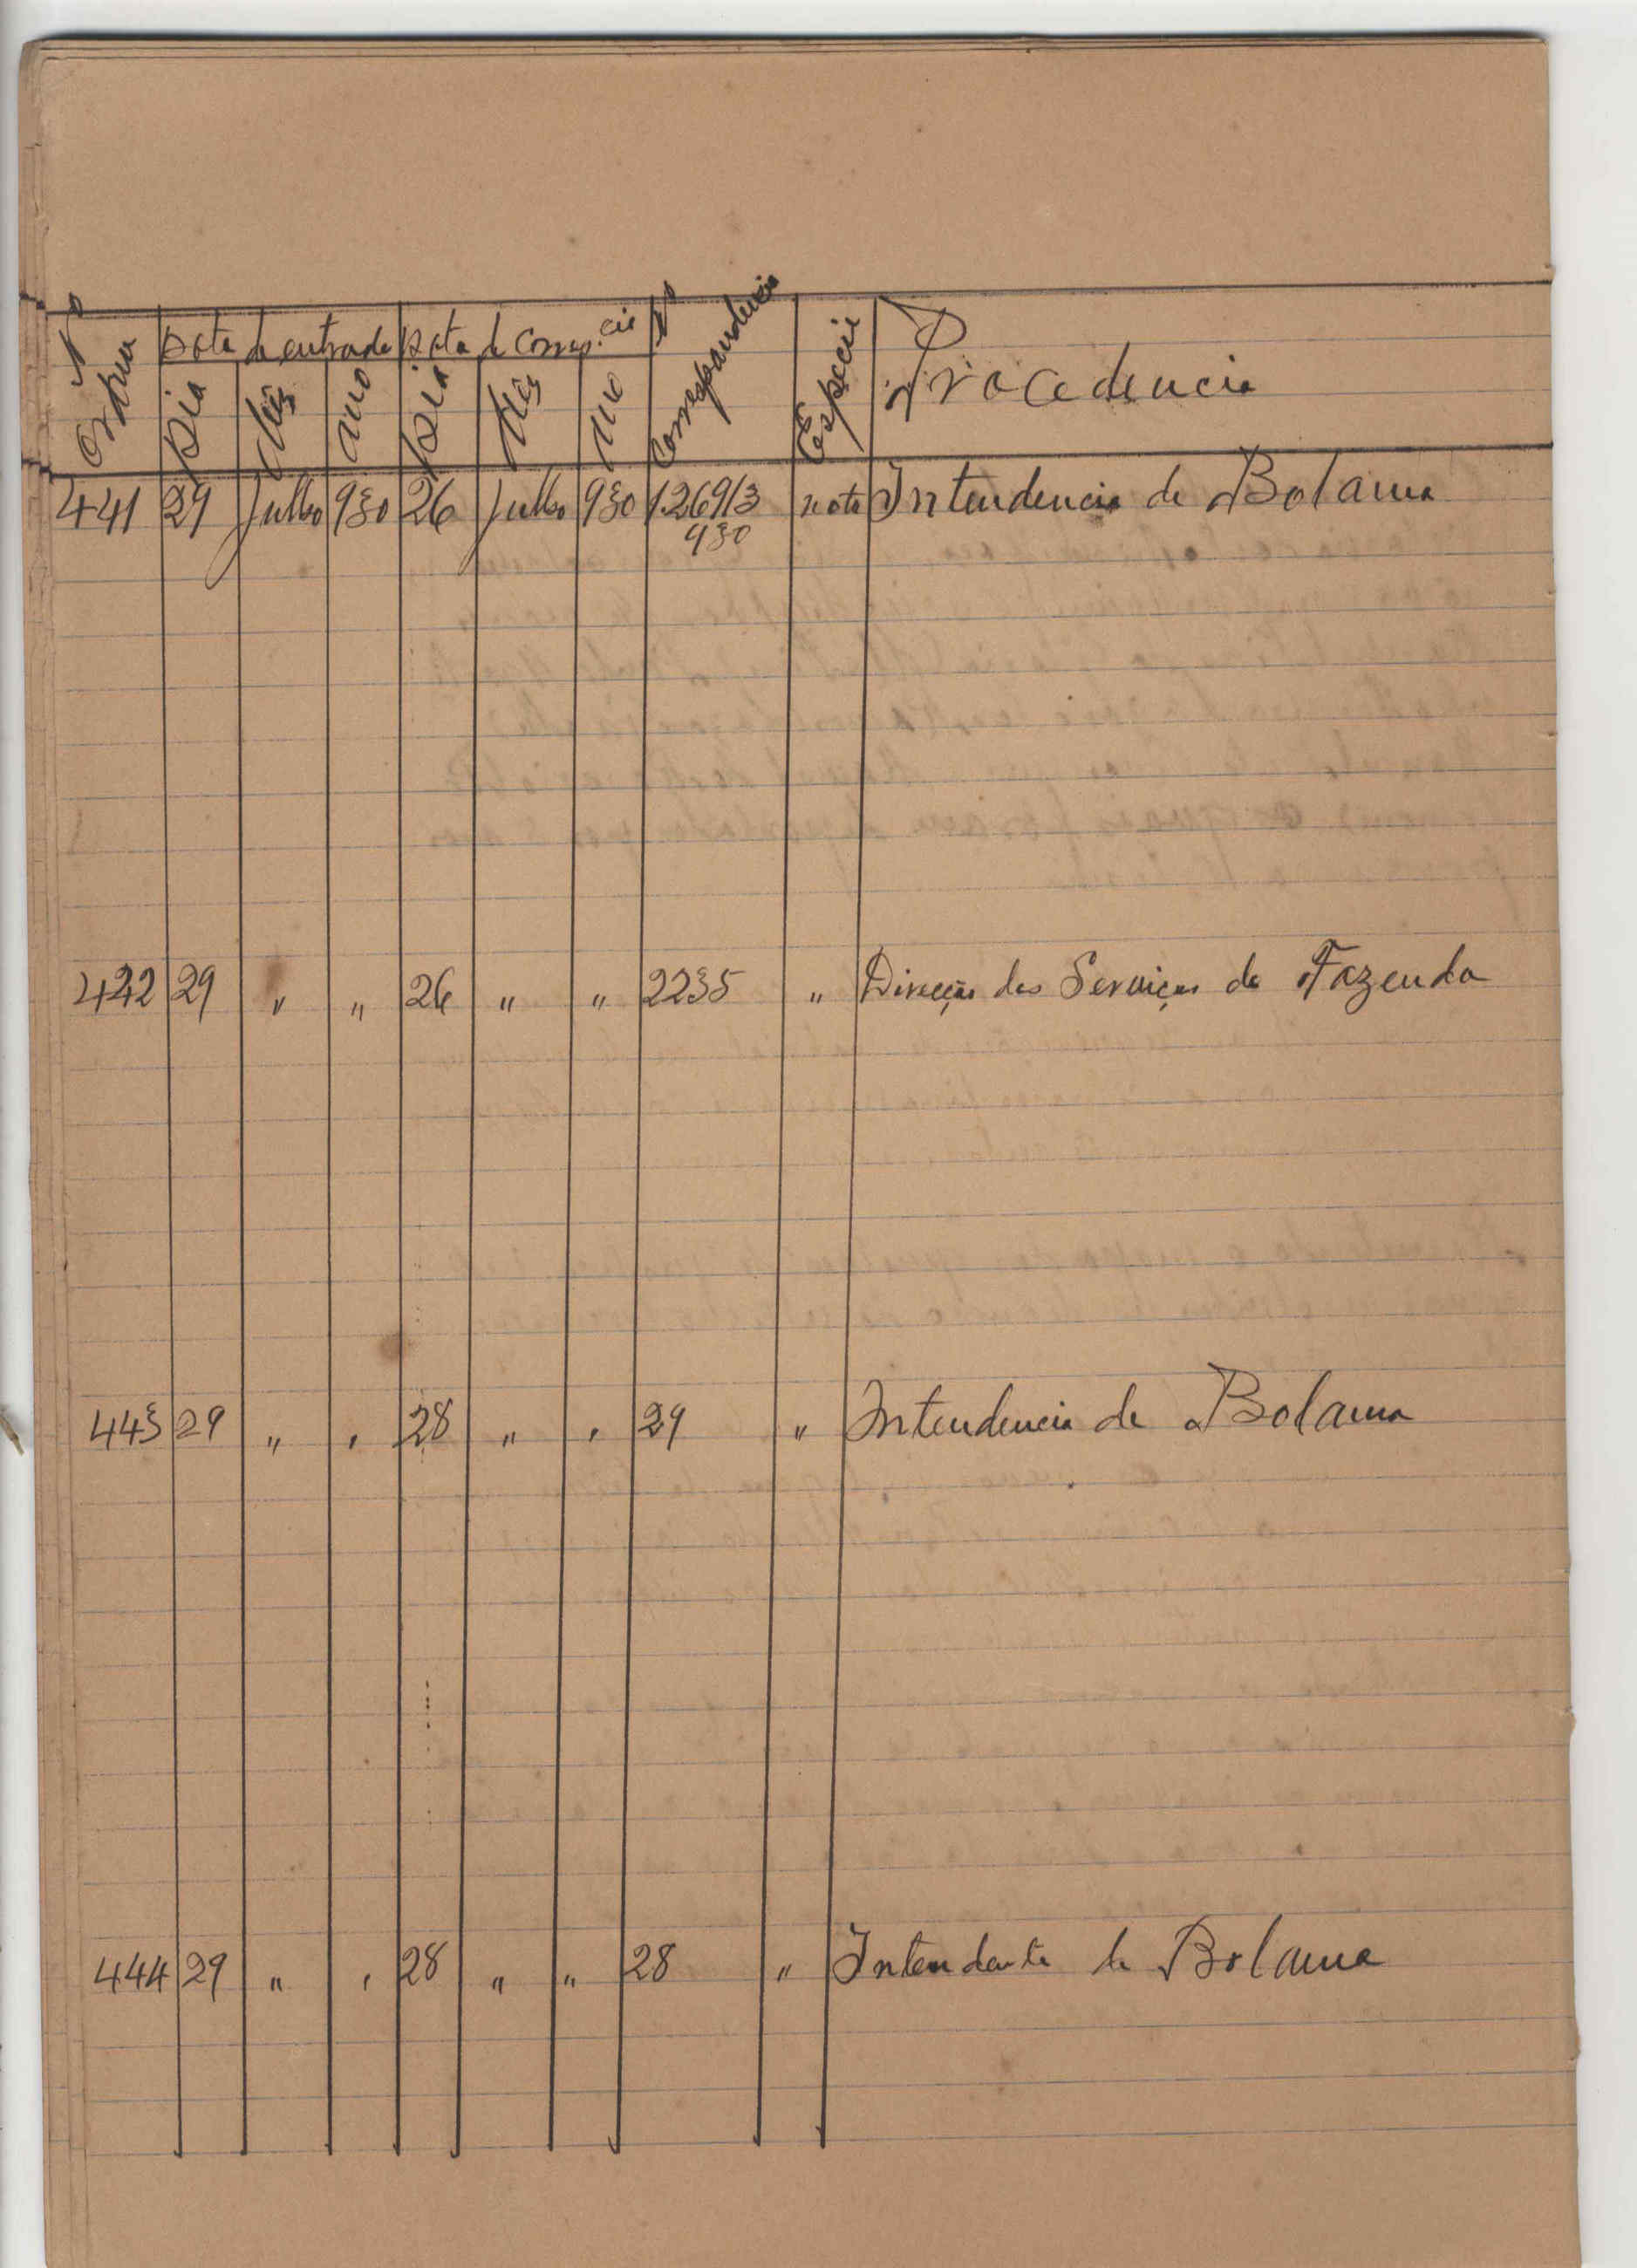 Nº Ordem
Data de entrada
Data de Corresp.cia
Nº Correspondencia
Especie
Procedencia
Dia Mês Ano Dia Mês Ano
441 29 Julho 930 26 Julho 930 1.269/3 nota Intendencia de Bolama
930
442 29 " " 26 " " 2235 " Direcção dos Serviços de Fazenda
443 29 " " 28 " " 29 " Intendencia de Bolama
444 29 " " 28 " " 28 " Intendente de Bolama